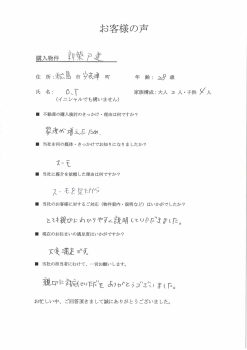 お客様の声
購入物件 新築戸建
住所:松島市 町 年齢:28歳
氏名:O.S 家族構成:大人2人・子供4人
(イニシャルでも構いません)
■ 不動産の購入検討のきっかけ・理由は何ですか?
家族が増えたため
■ 当社を何の媒体・きっかけでお知りになりましたか?
スーモ
■ 当社に仲介を依頼した理由は何ですか?
スーモを見てから
■ 当社のお客様に対するご対応(物件案内・説明など)はいかがでしたか?
とても親切にわかりやすく説明していただきました。
■ 現在のお住まいの満足度はいかがですか?
大変満足です
■ 当社の担当者にむけて、一言お願いします。
親切に対応していただきありがとうございました。
お忙しい中、ご回答頂きまして誠にありがとうございました。